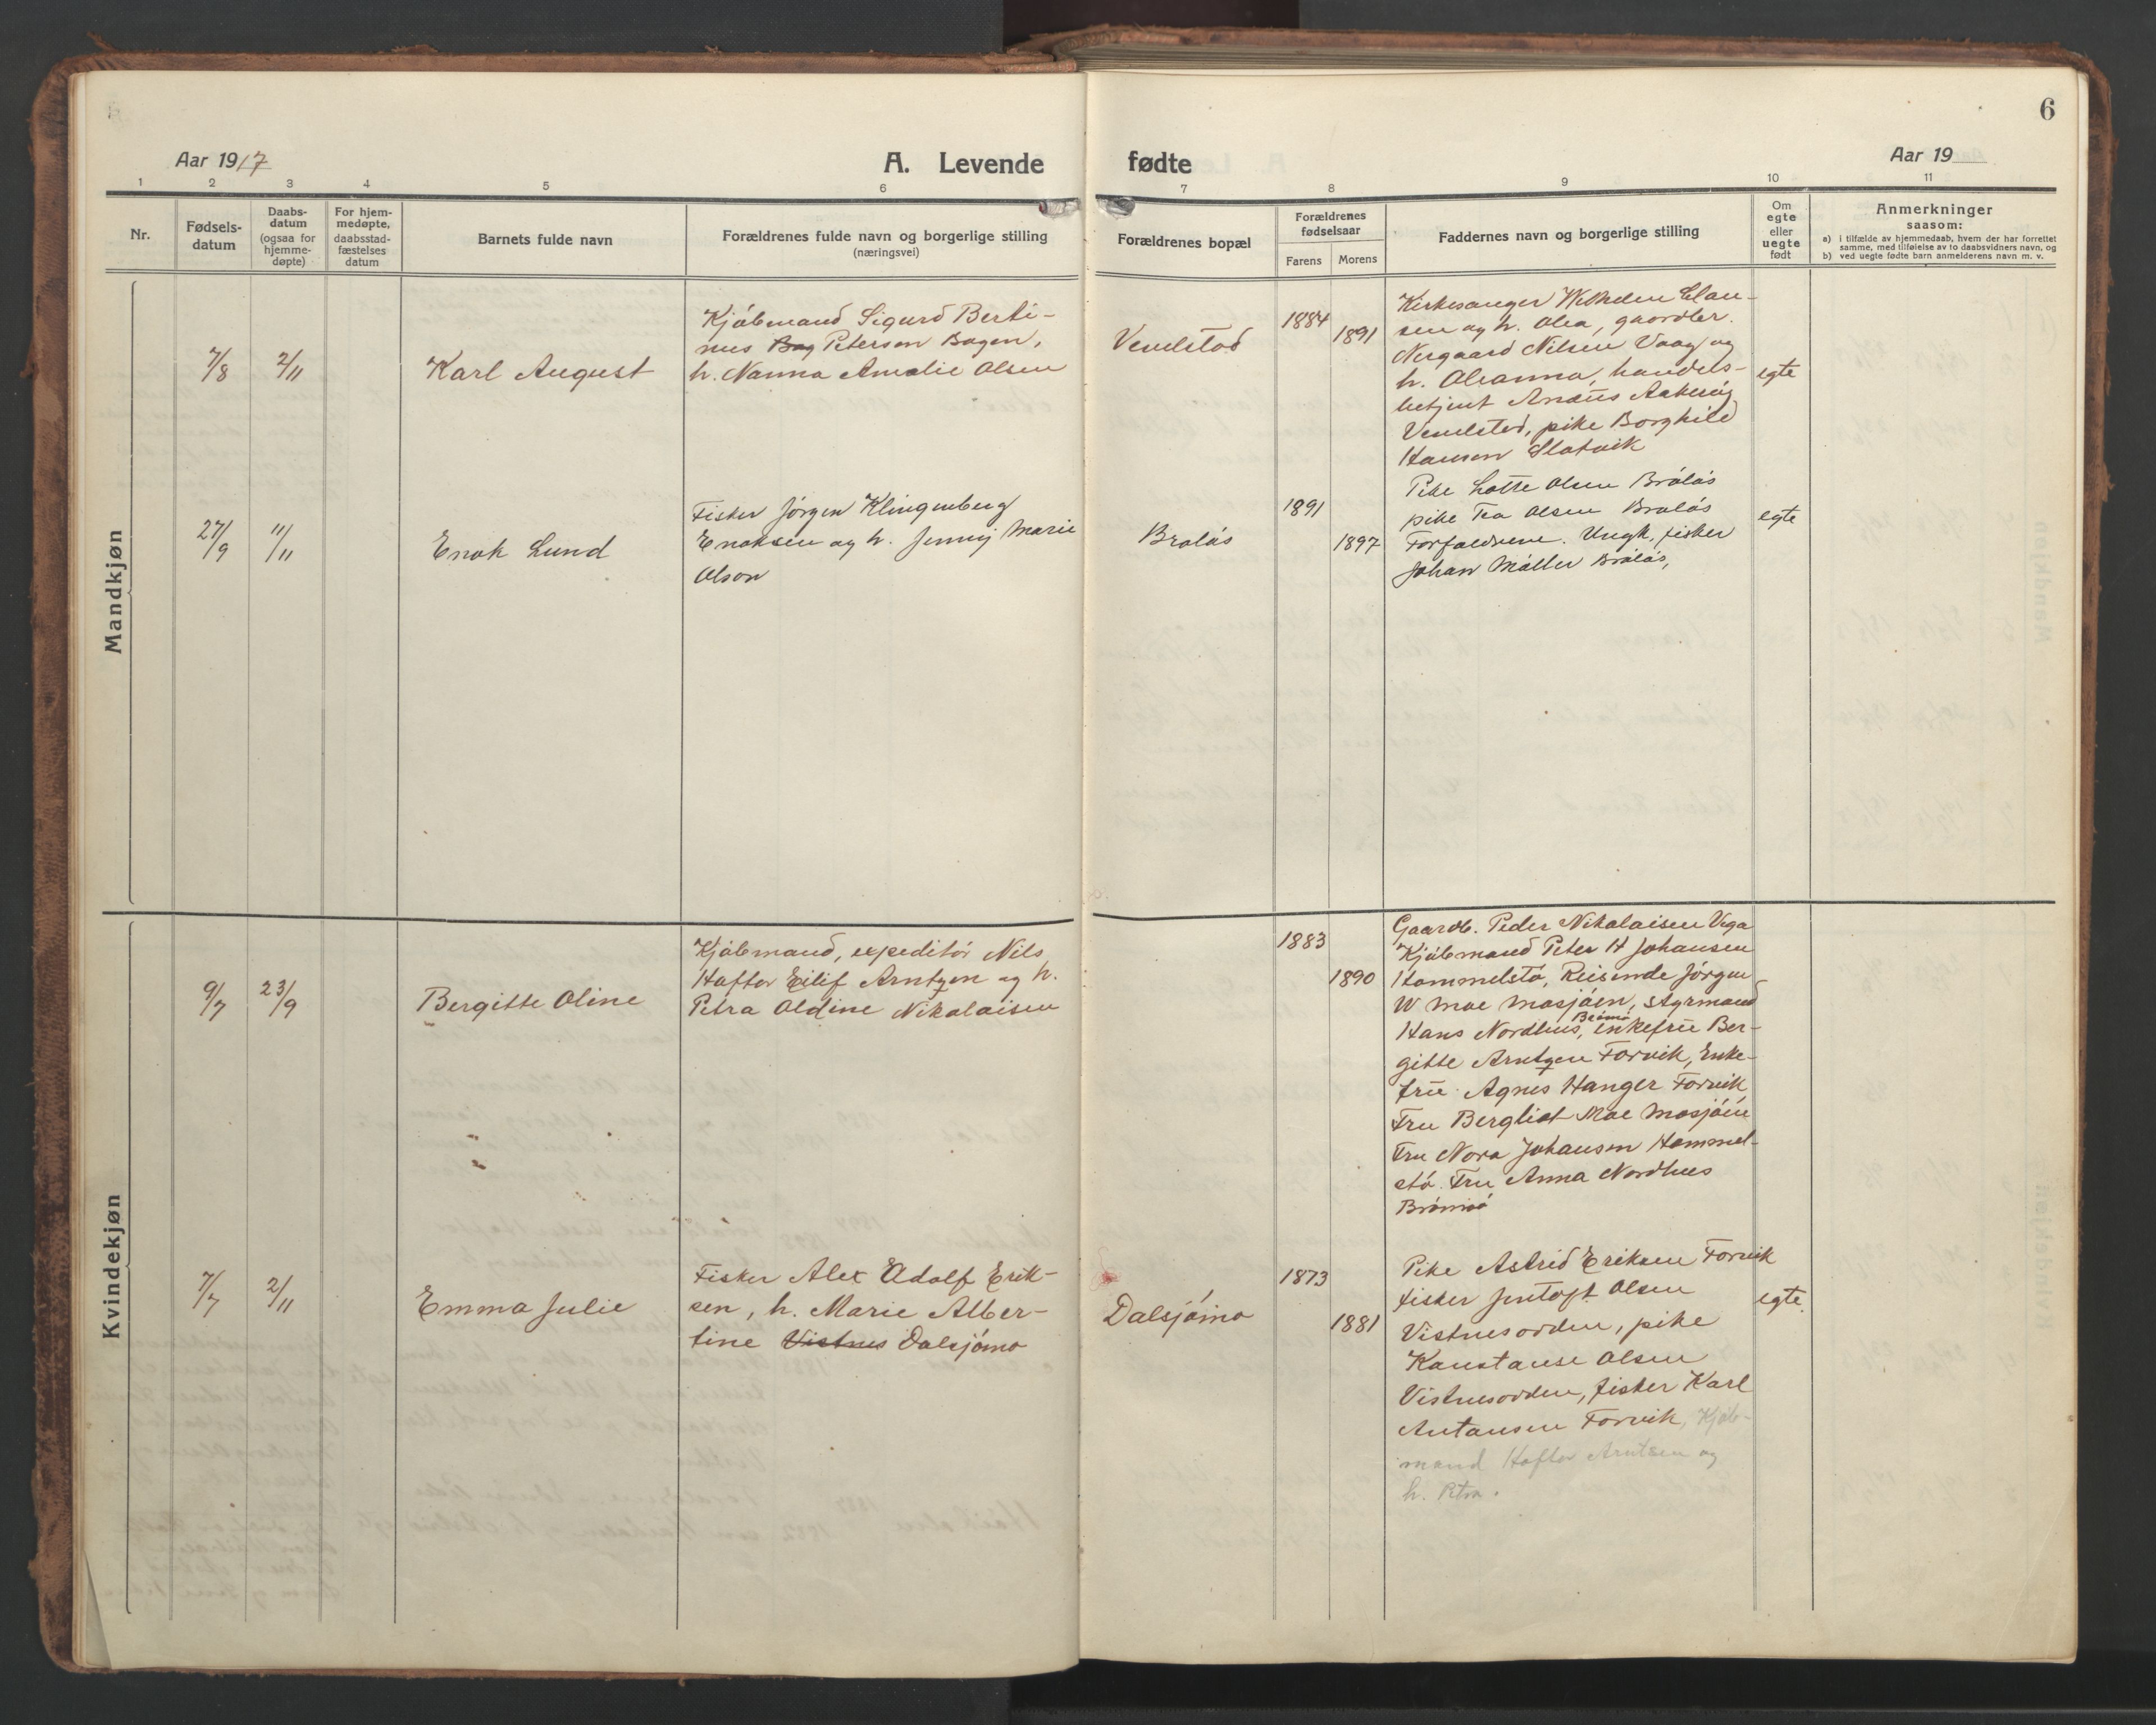 6
Aar 1917
A. Levende fødte
Aar 19
1 2 3 4 5 6 7 8 9 10 11
Nr.
Fødsels-
datum
Daabs-
datum
(ogsaa for
hjemme-
døpte)
For hjem-
medøpte,
daabsstad-
fæstelses
datum
Barnets fulde navn
Forældrenes fulde navn og borgerlige stilling
(næringsvei)
Forældrenes bopæl
Forældrenes
fødselsaar
Farens
Morens
Faddernes navn og borgerlige stilling
Om
egte
eller
uegte
født
Anmerkninger
saasom:
a) i tilfælde av hjemmedaab, hvem der har forrettet
samme, med tilføielse av to daabsvidners navn, og
b) ved uegte fødte barn anmelderens navn m. v.
Mandkjøn
7/8
2/11
Karl August
Kjøbmand Sigurd Berti-
nus Bog Peterson Bogen,
h. Nanna Amalie Olsen
1884
1891
Kirkesanger Wilhelm Clau-
sen og h. Olea, gaardbr.
Nergaard Nilsen Vaag og
h. Oleanna, handels-
betjent
pike Borghild
Hansen Slotvik
egte
27/9
11/11
Enok Lund
Fisker Jörgen Klingenberg
Enoksen og h. Jenny Marie
Olson
Braläs
1891
1897
Pike Lotte Olsen Bråläs
pike Tea Olsen Braläs
Forfaldrene. Ungk. fisker
Johan Möller Bråläs,
egte
Kvindekjøn
9/7
23/9
Bergitte Oline
Kjöbmand, expeditör Nils
Haftor Eilif Arntzen og h.
Petra Oldine Nikolaisen
1883
1890
Gaardb. Peder Nikolaisen Vega
Kjöbmand Peter H Johansen
Hommelstö, Reisende Jörgen
W Moe Mosjöen, styrmand
Hans Nordhus, Brömsö, enkefru Ber-
gitte Arntzen Forvik, Enke-
fru Agnes Hanger Forvik
Fru Bergliot Moe Mosjöen
Fru Nora Johansen Hommel-
stö. Fru Anna Nordhus
Brömsö
7/7
2/11
Emma Julie
Fisker Alex Adolf Erik-
sen, h. Marie Alber-
tine Vistnes Dalsjömo
Dalsjömo
1873
1881
Pike Astrid Eriksen Forvik
fisker Jentoft Olsen
Vistnesodden, pike
Konstanse Olsen
Vistnesodden, fisker Karl
Antonsen Forvik, Kjöb-
mand Haftor Arntsen og
h. Petra.
egte.